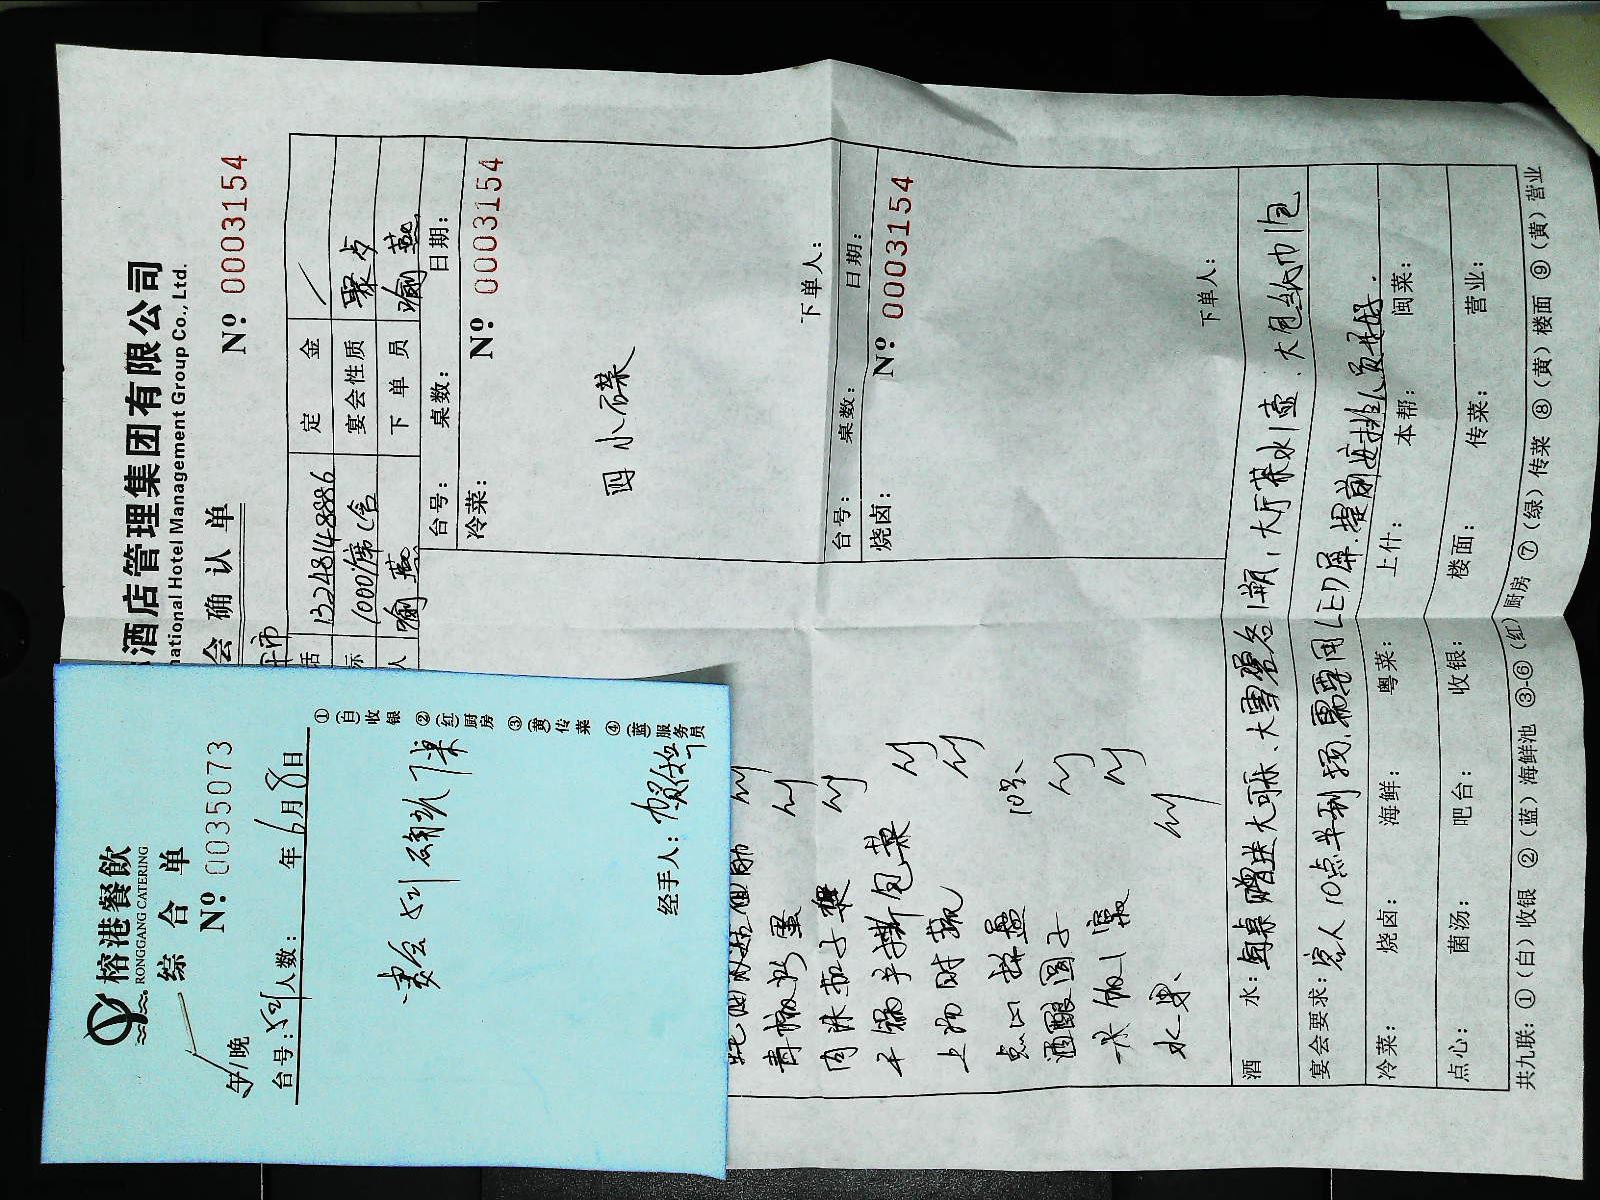 酒店管理集团有限公司
national Hotel Management Group Co., Ltd.
会确认单
Nº 0003154
话 13248148886 定金 /
示 1000/席(含 宴会性质 聚点
人 下单员
台号: 桌数: 日期:
冷菜: Nº 0003154
四小碟
下单人:
台号: 桌数: 日期:
烧卤: Nº 0003154
下单人:
青椒炒蛋
肉沫茄子煲
千锅手撕包菜
上汤时蔬
点心拼盘 10条
酒酿圆子
水果
酒水: 每桌赠送大可乐、大雪碧各1瓶,大厅茶水1壶、大包纸巾1包
宴会要求: 客人10点半到场,需要用LED屏.提前安排人员开好.
冷菜: 烧卤: 海鲜: 粤菜: 上什: 本帮: 闽菜:
点心: 菌汤: 吧台: 收银: 楼面: 传菜: 营业:
共九联: ①(白)收银 ②(蓝)海鲜池 ③-⑥(红)厨房 ⑦(绿)传菜 ⑧(黄)楼面 ⑨(黄)营业
榕港餐飲
RONGGANG CATERING
综合单
Nº 0035073
午/晚
台号: 521 人数: 年 6月8日
宴会521确认下课
经手人:
①(白)收银
②(红)厨房
③(黄)传菜
④(蓝)服务员